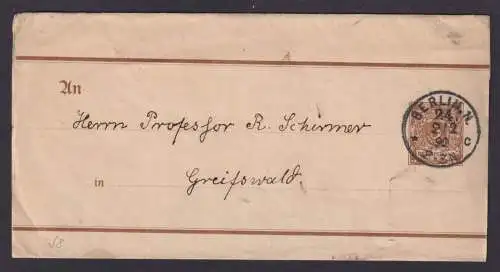 An
Herrn Professor R. Schirmer
in
Greifswald.
BERLIN.N.
24
2
92
C
58